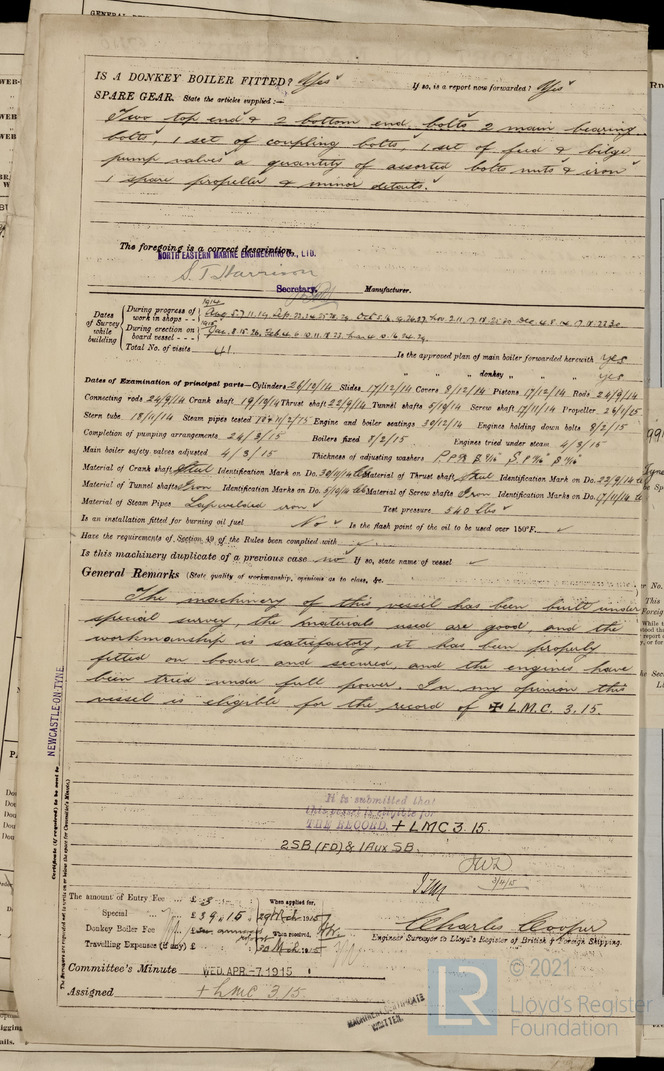 IS A DONKEY BOILER FITTED? Yes If so, is a report now forwarded? Yes
SPARE GEAR. State the articles supplied :—
Two top end & 2 bottom end bolts 2 main bearing
bolts, 1 set of coupling bolts, 1 set of feed & bilge
pump valves a quantity of assorted bolts nuts & iron
1 spare propeller & minor details.
The foregoing is a correct description,
NORTH EASTERN MARINE ENGINEERING Co., LTD.
S. T. Harrison
Secretary. Manufacturer.
Dates of Survey while building
1914
During progress of work in shops - -
1915
During erection on board vessel - - -
Total No. of visits 41.
Is the approved plan of main boiler forwarded herewith yes
" " " donkey " " " yes
Dates of Examination of principal parts—Cylinders 26/10/14 Slides 17/12/14 Covers 9/12/14 Pistons 17/12/14 Rods 24/9/14
Connecting rods 24/9/14 Crank shaft 19/10/14 Thrust shaft 22/9/14 Tunnel shafts 5/10/14 Screw shaft 17/11/14 Propeller 26/1/15
Stern tube 18/11/14 Steam pipes tested 11/2/15 Engine and boiler seatings 30/12/14 Engines holding down bolts 8/2/15
Completion of pumping arrangements 24/3/15 Boilers fixed 8/2/15 Engines tried under steam 4/3/15
Main boiler safety valves adjusted 4/3/15 Thickness of adjusting washers
Material of Crank shaft Steel Identification Mark on Do. Material of Thrust shaft Steel Identification Mark on Do. 22/9/14
Material of Tunnel shafts Iron Identification Marks on Do. 5/10/14 Material of Screw shafts Iron Identification Marks on Do. 17/11/14
Material of Steam Pipes Lapwelded iron Test pressure 540 lbs
Is an installation fitted for burning oil fuel No Is the flash point of the oil to be used over 150°F.
Have the requirements of Section 49 of the Rules been complied with
Is this machinery duplicate of a previous case no If so, state name of vessel
General Remarks (State quality of workmanship, opinions as to class, &c.
The machinery of this vessel has been built under
special survey, the materials used are good and the
workmanship is satisfactory, it has been properly
fitted on board and secured, and the engines have
been tried under full power. In my opinion this
vessel is eligible for the record of ✠ L.M.C. 3.15.
NEWCASTLE-ON-TYNE
Certificate (if required) to be sent to
It is submitted that
this vessel is eligible for
THE RECORD. + LMC 3.15.
2SB (FD) & 1 Aux SB.
JWD
3/4/15
The amount of Entry Fee £ 3 When applied for,
Special £ 39 . 15 1915
Donkey Boiler Fee £ When received,
Travelling Expenses (if any) £
Charles Cooper
Engineer Surveyor to Lloyd's Register of British & Foreign Shipping.
Committee's Minute WED. APR -7 1915
Assigned + LMC 3.15
MACHINERY CERTIFICATE
WRITTEN.
© 2021
LR
Lloyd's Register
Foundation